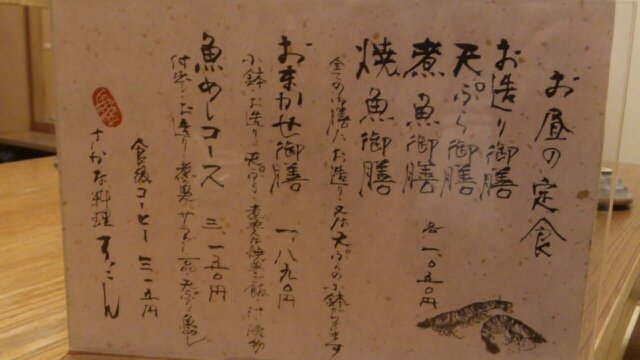 お昼の定食
お造り御膳
天ぷら御膳
煮魚御膳
焼魚御膳
各一、〇五〇円
全ての御膳にお造り又は天ぷらの小鉢が付きます
おまかせ御膳 一、八九〇円
小鉢 お造り 天ぷら 煮魚又は焼魚 御飯 汁 漬物
魚めしコース 三、一五〇円
付出し お造り 煮魚 サラダ 天ぷら 魚めし
食後コーヒー 三一五円
さかな料理